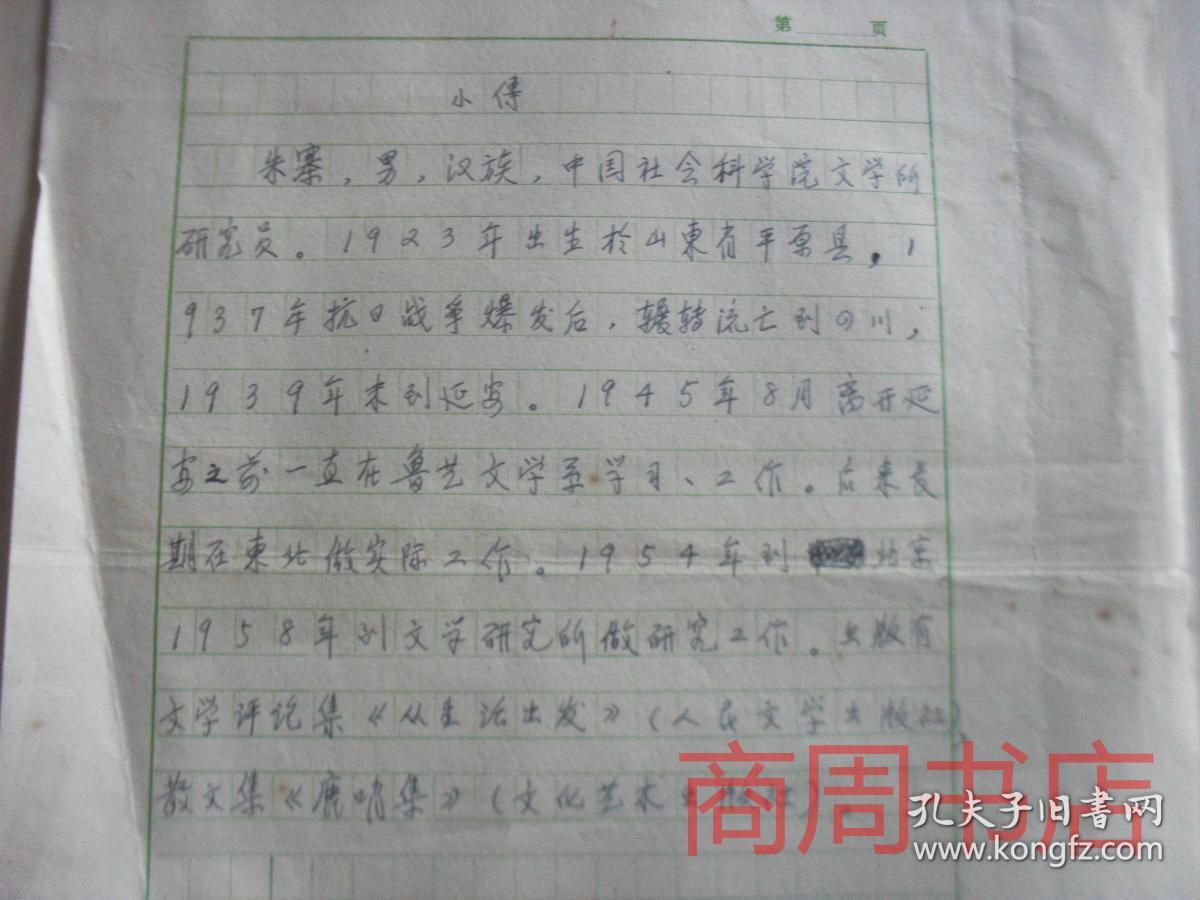 第 页
小傳
朱寨，男，汉族，中国社会科学院文学所
研究员。1923年出生於山東省平原县，1
937年抗日战争爆发后，辗转流亡到四川，
1939年末到延安。1945年8月离开延
安之前一直在鲁艺文学系学习、工作。后来長
期在東北做实际工作。1954年到 北京
1958年到文学研究所做研究工作。出版有
文学评论集《从生活出发》（人民文学出版社）、
散文集《鹿哨集》（文化艺术出版社）
商周书店
孔夫子旧书网
www.kongfz.com